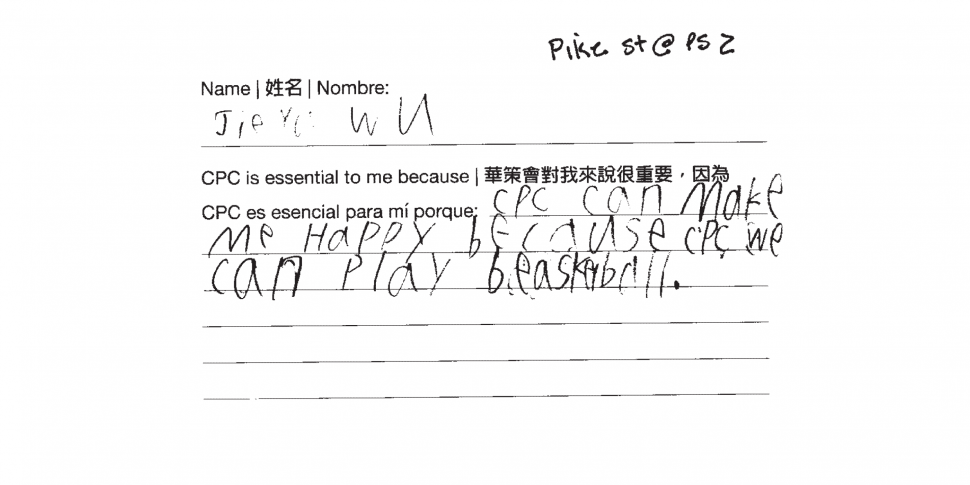 Pike st @ PS 2
Name | 姓名 | Nombre:
WU
CPC is essential to me because | 華策會對我來說很重要，因為
CPC es esencial para mí porque: CPC can make
me Happy because CPC we
can Play beasketball.